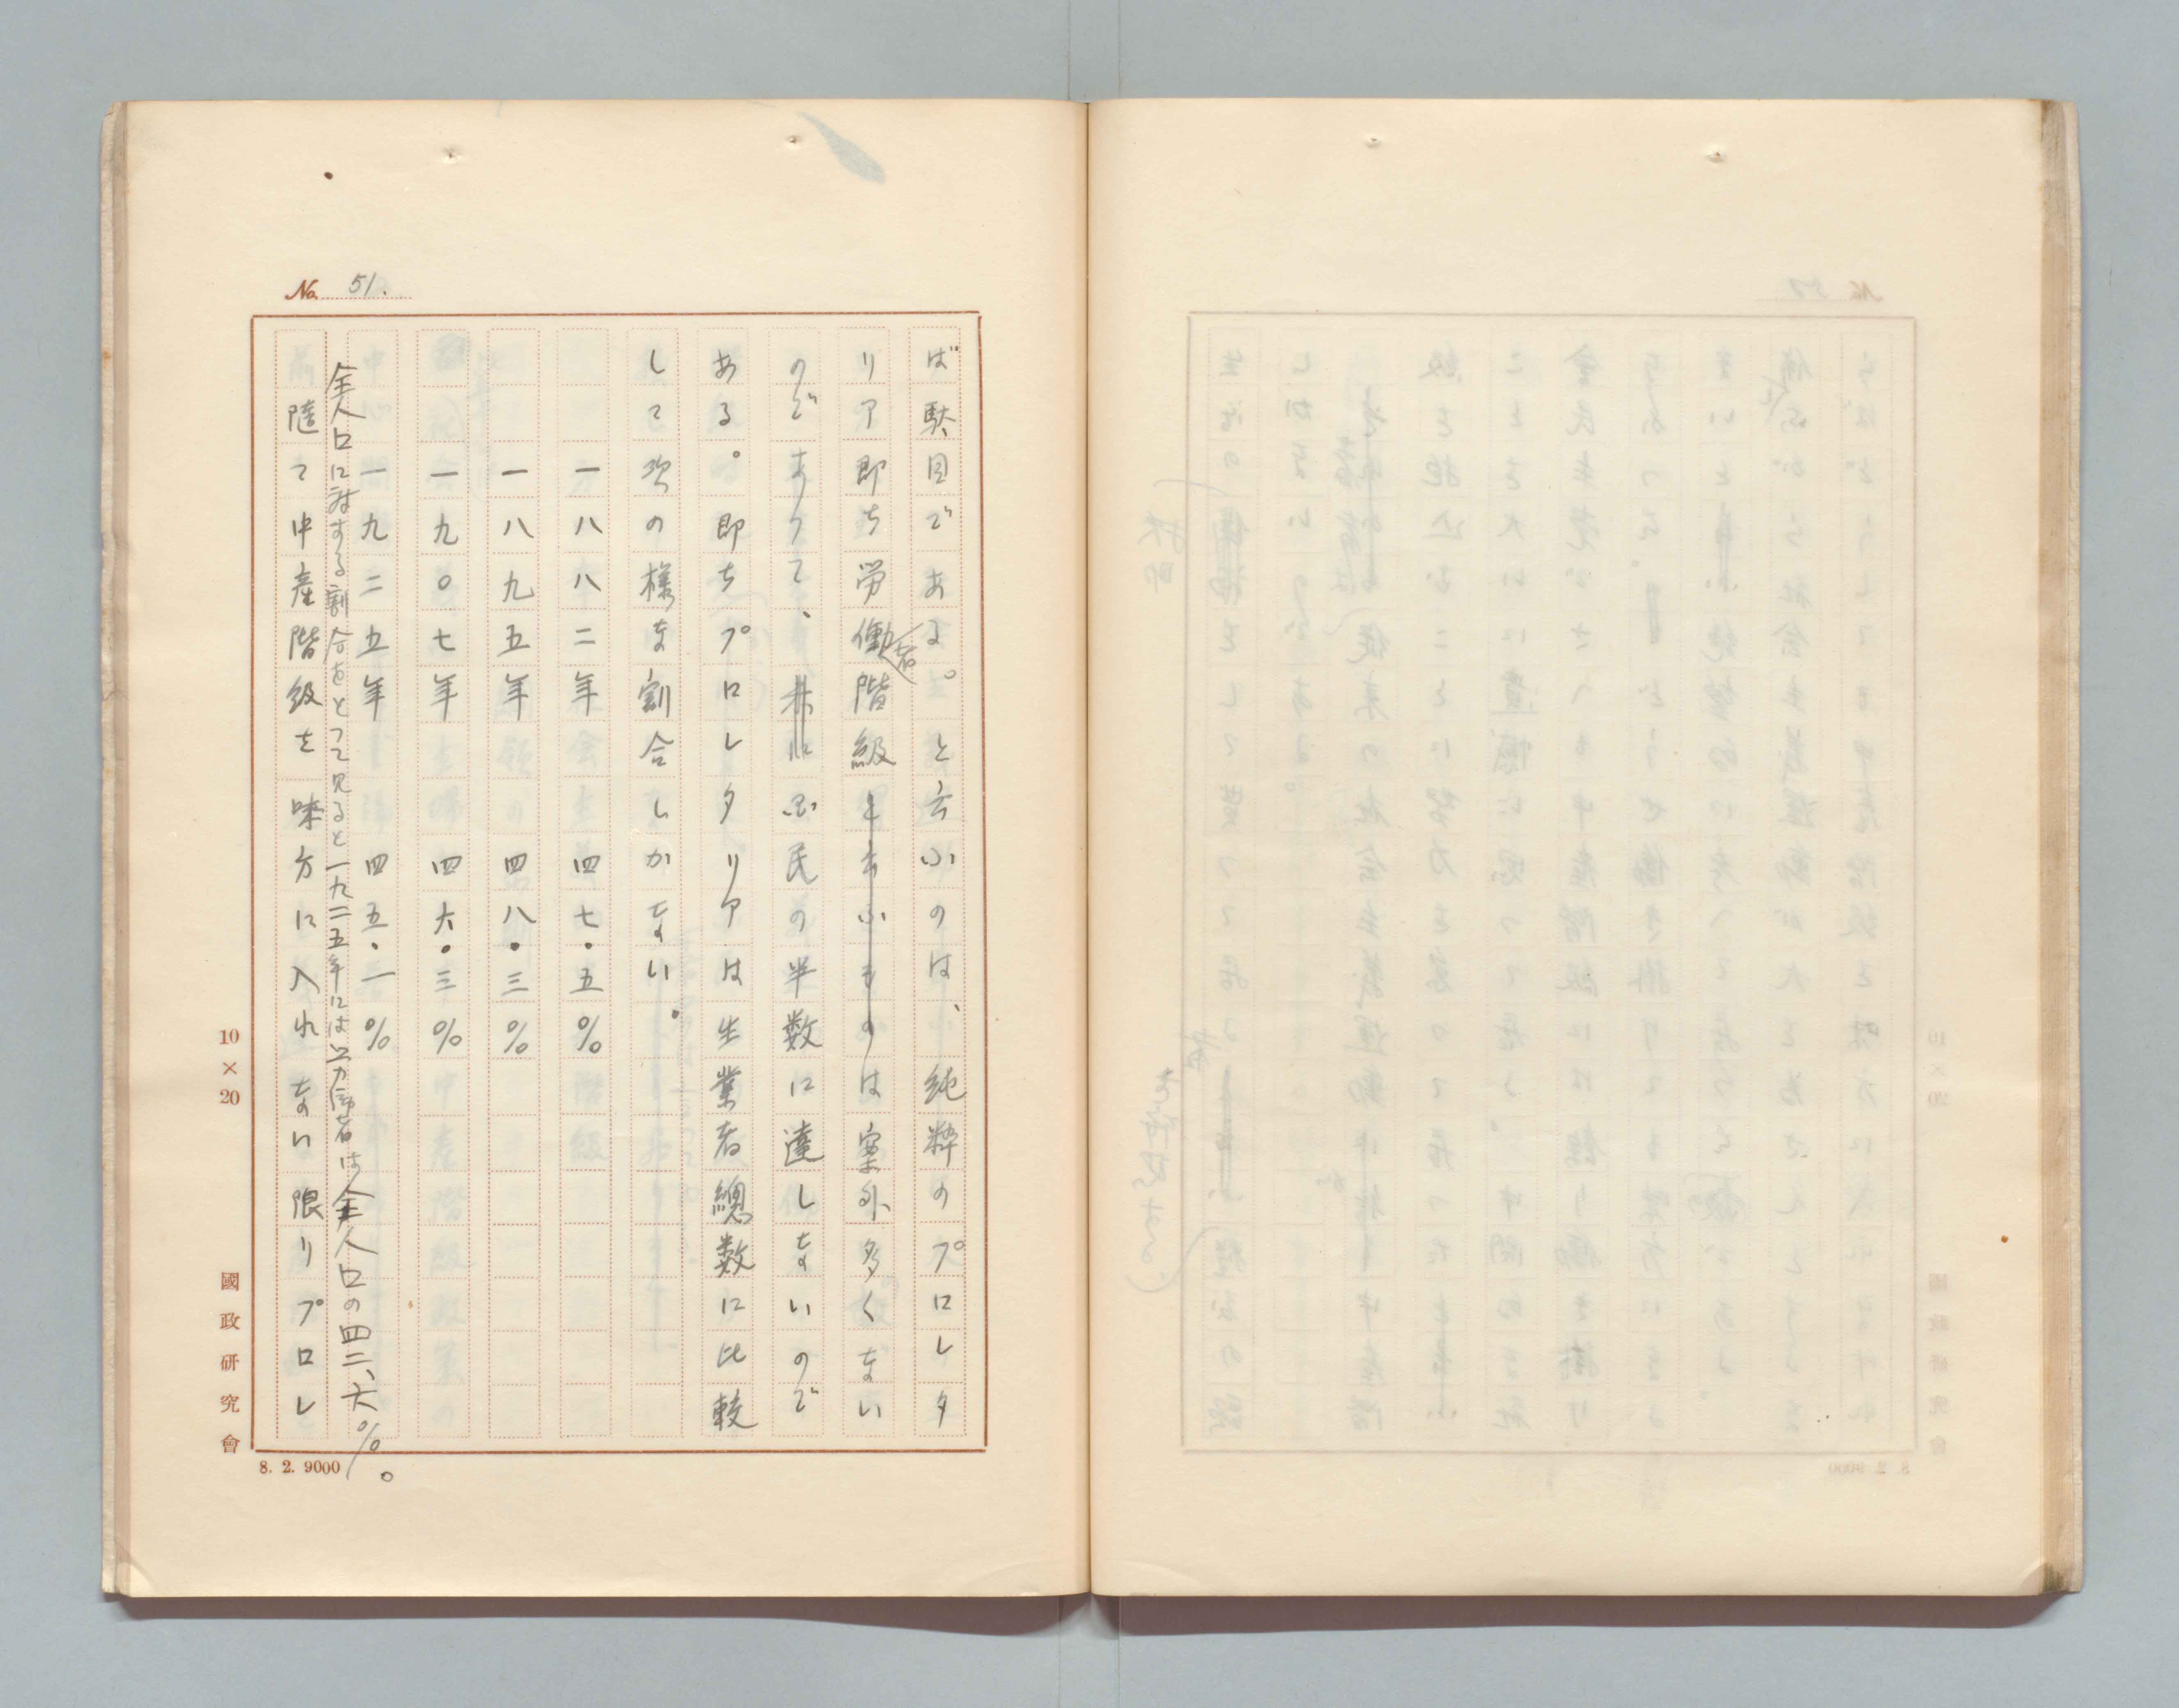 No. 51.
ば駄目である。と云ふのは、純粋のプロレタ
リア即ち労働者階級と云ふものは案外多くない
のでありて、井に國民の半数に達しないので
ある。即ちプロレタリアは生業者總数に比較
して次の様な割合しかない。
一八八二年 四七・五%
一八九五年 四八・三%
一九〇七年 四六・三%
一九二五年 四五・一%
全人口に対する割合をとって見ると一九二五年には労働者は全人口の四二、六%。
隨て中産階級を味方に入れない限りプロレ
10×20
國政研究會
8. 2. 9000